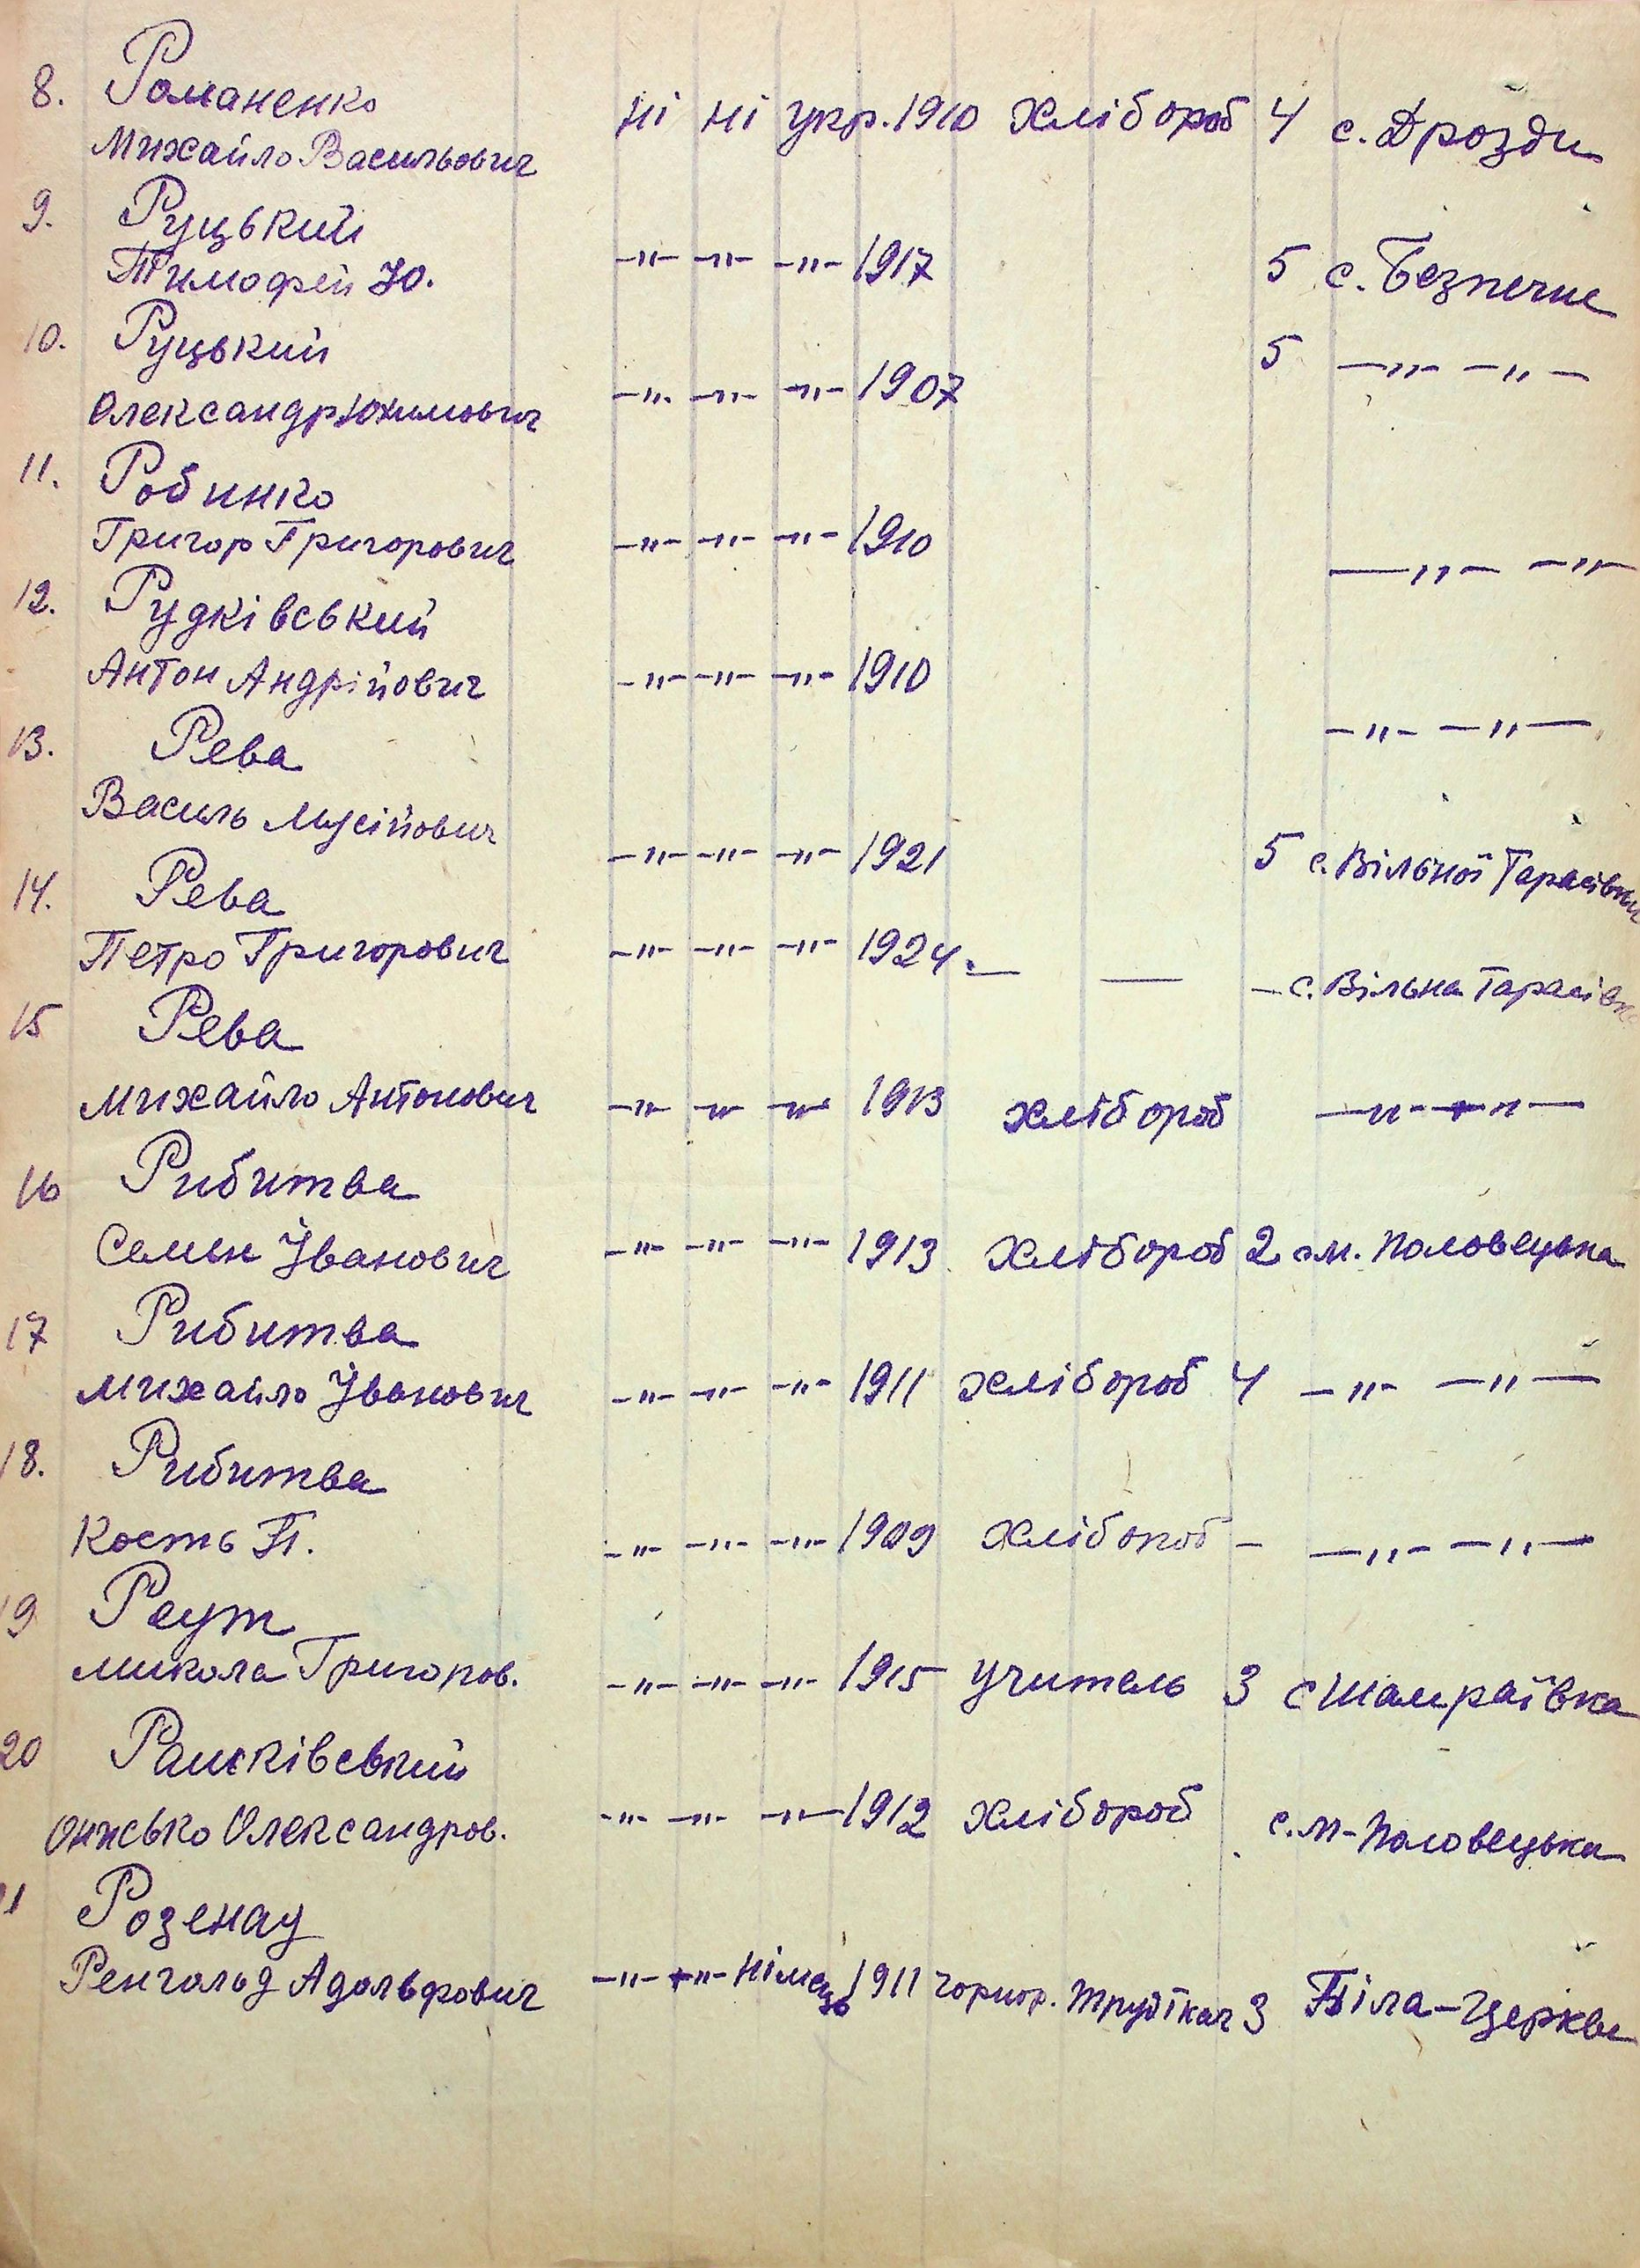 8. Романенко
Михайло Васильович ні ні укр. 1910 хлібороб 4 с. Дрозди
9. Руцький
Тимофей Ю. —"— —"— —"— 1917 5 с. Безпечне
10. Руцький
Олександр Юхимович —"— —"— —"— 1907 5 —"— —"—
11. Робинко
Григор Григорович —"— —"— —"— 1910 —"— —"—
12. Рудківський
Антон Андрійович —"— —"— —"— 1910 —"— —"—
13. Рева
Василь Мусійович —"— —"— —"— 1921 5 с. Вільної Тарасівки
14. Рева
Петро Григорович —"— —"— —"— 1924. — — — с. Вільна Тарасівка
15 Рева
Михайло Антонович —"— —"— —"— 1913 хлібороб —"— —"—
16 Рибитва
Семен Іванович —"— —"— —"— 1913 хлібороб 2 с м. Половецька
17 Рибитва
Михайло Іванович —"— —"— —"— 1911 хлібороб 4 —"— —"—
18. Рибитва
Кость П. —"— —"— —"— 1909 хлібороб — —"— —"—
19 Реут
Микола Григоров. —"— —"— —"— 1915 учитель 3 с Шамраївка
20 Рашківський
Олександров. —"— —"— —"— 1912 хлібороб с. м-Половецька
1 Розенау
Ренгольд Адольфович —"— —"— німець 1911 чорнор. 3 Біла-Церква